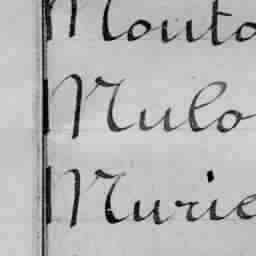 Mouto
Mulo
Murie